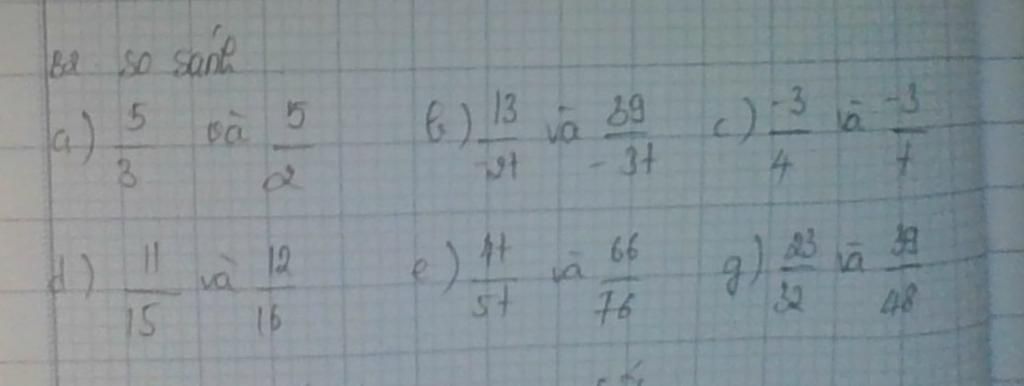 B2 so sánh
a) 5/3 và 5/2 b) 13/-27 và 39/-37 c) -3/4 và -3/7
d) 11/15 và 12/16 e) 47/57 và 66/76 g) 23/32 và 39/48